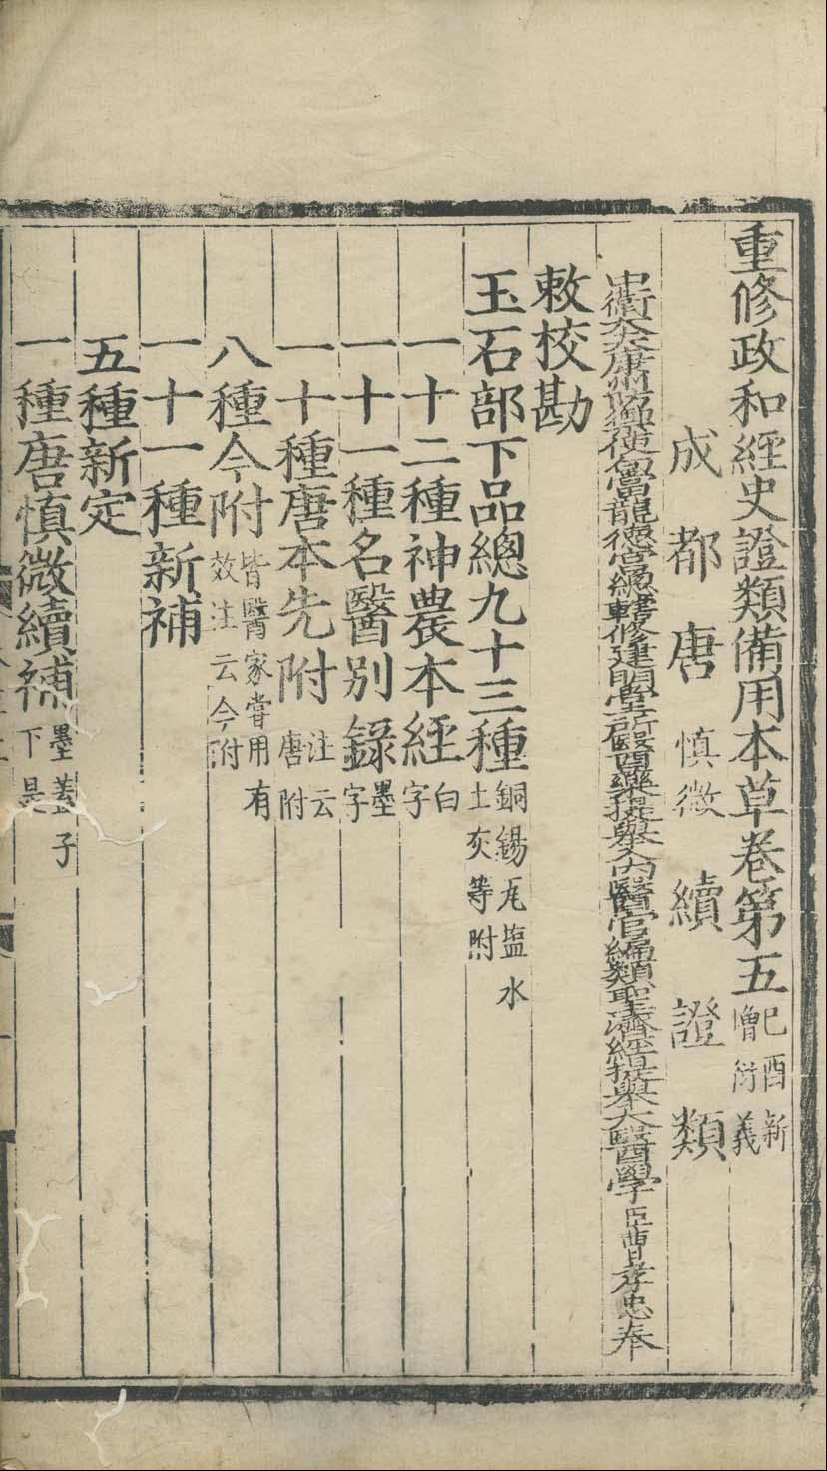 重修政和經史證類備用本草卷第五己酉新增衍義
成都唐慎微續證類
中衛大夫康州防禦使句當龍德宮總轄修建明堂所醫藥提舉入內醫官編類聖濟經提舉大醫學臣曹孝忠奉
敕校勘
玉石部下品總九十三種銅錫瓦盐水土灰等附
一十二種神農本經白字
一十一種名醫別錄墨字
一十種唐本先附注云唐附
八種今附皆醫家嘗用有效注云今附
一十一種新補
五種新定
一種唐慎微續補墨蓋子下是